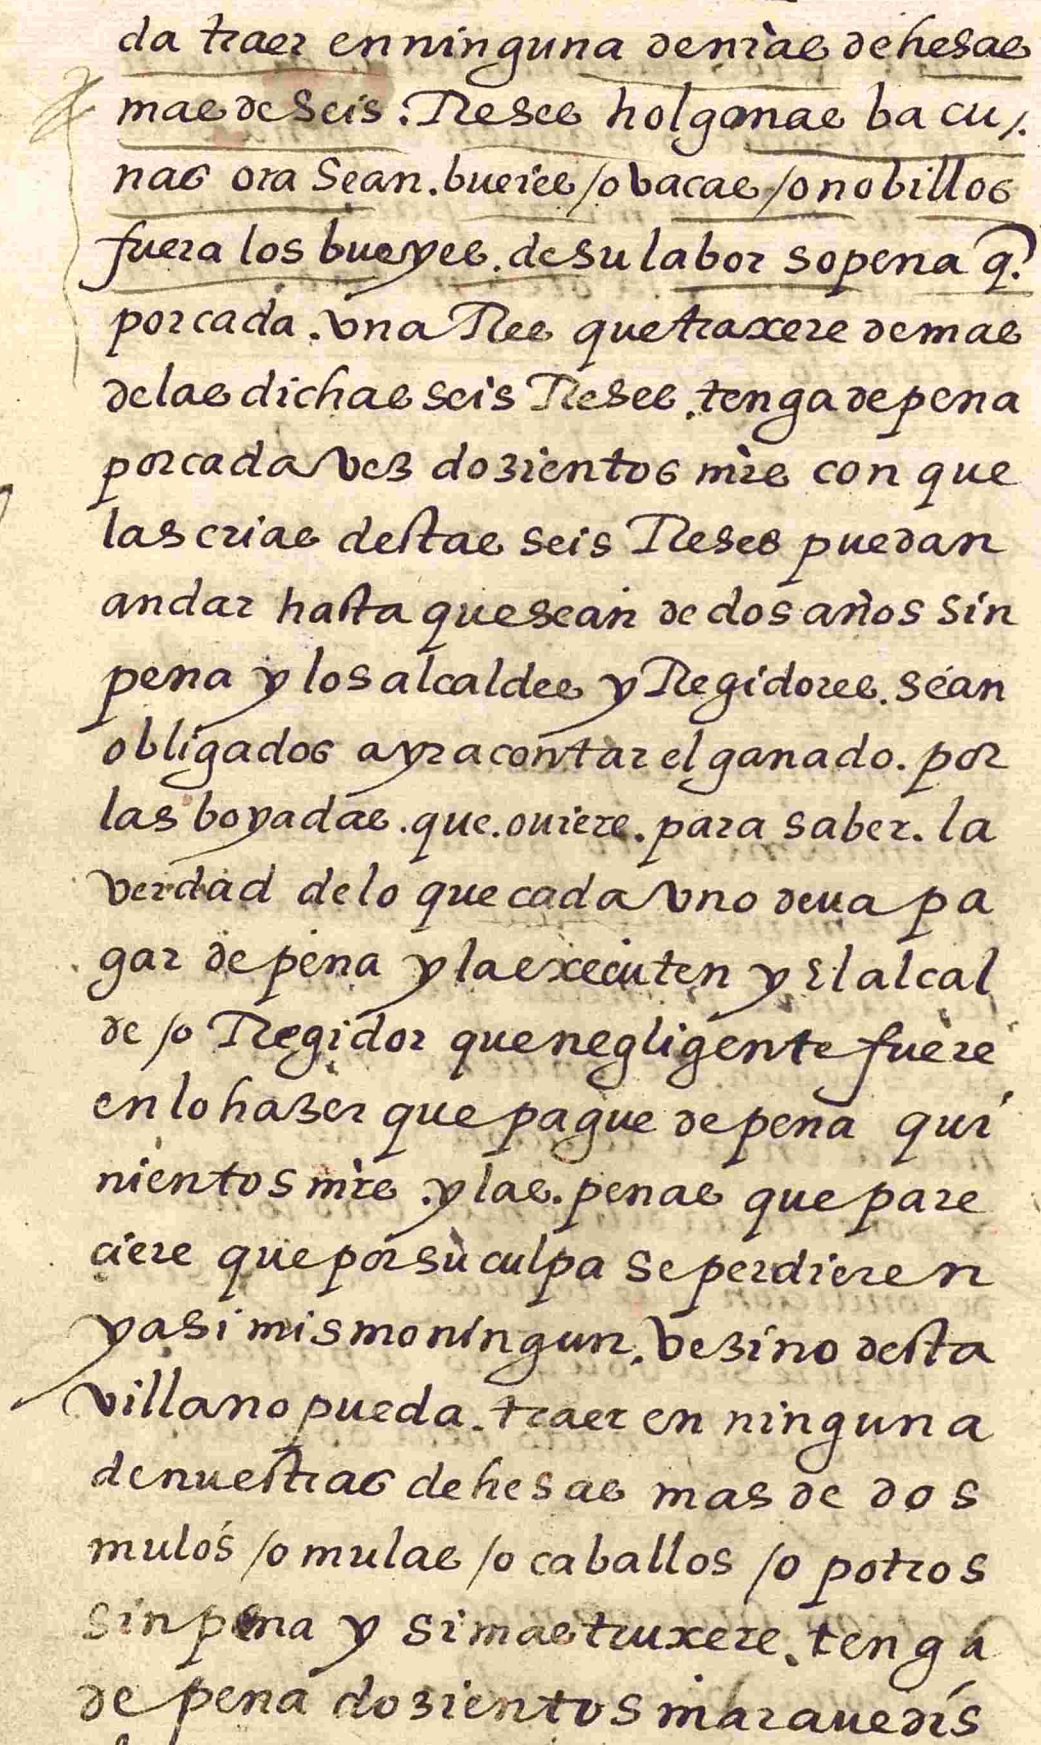 da traer en ninguna de nr̃as dehesas
mas de seis. Reses holgonas bacu/.
nas ora sean. bueies /o vacas /o nobillos
fuera los bueyes. de su labor so pena q.
por cada. vna Res que traxere demas
de las dichas seis Reses. tenga de pena
por cada vez dozientos mr̃s con que
las crias destas seis Reses puedan
andar hasta que sean de dos años sin
pena y los alcaldes y Regidores. sean
obligados a yr a contar el ganado. por
las boyadas. que. ouiere. para saber. la
verdad de lo que cada vno deua pa
gar de pena y la executen y El alcal
de /o Regidor que negligente fuere
en lo hazer que pague de pena qui
nientos mr̃s. y las. penas que pare
ciere que por su culpa se perdieren
y asi mismo ningun. vezino desta
villa no pueda. traer en ninguna
de nuestras dehesas mas de dos
mulos /o mulas /o caballos /o potros
sin pena y si mas truxere. tenga
de pena dozientos maravedis